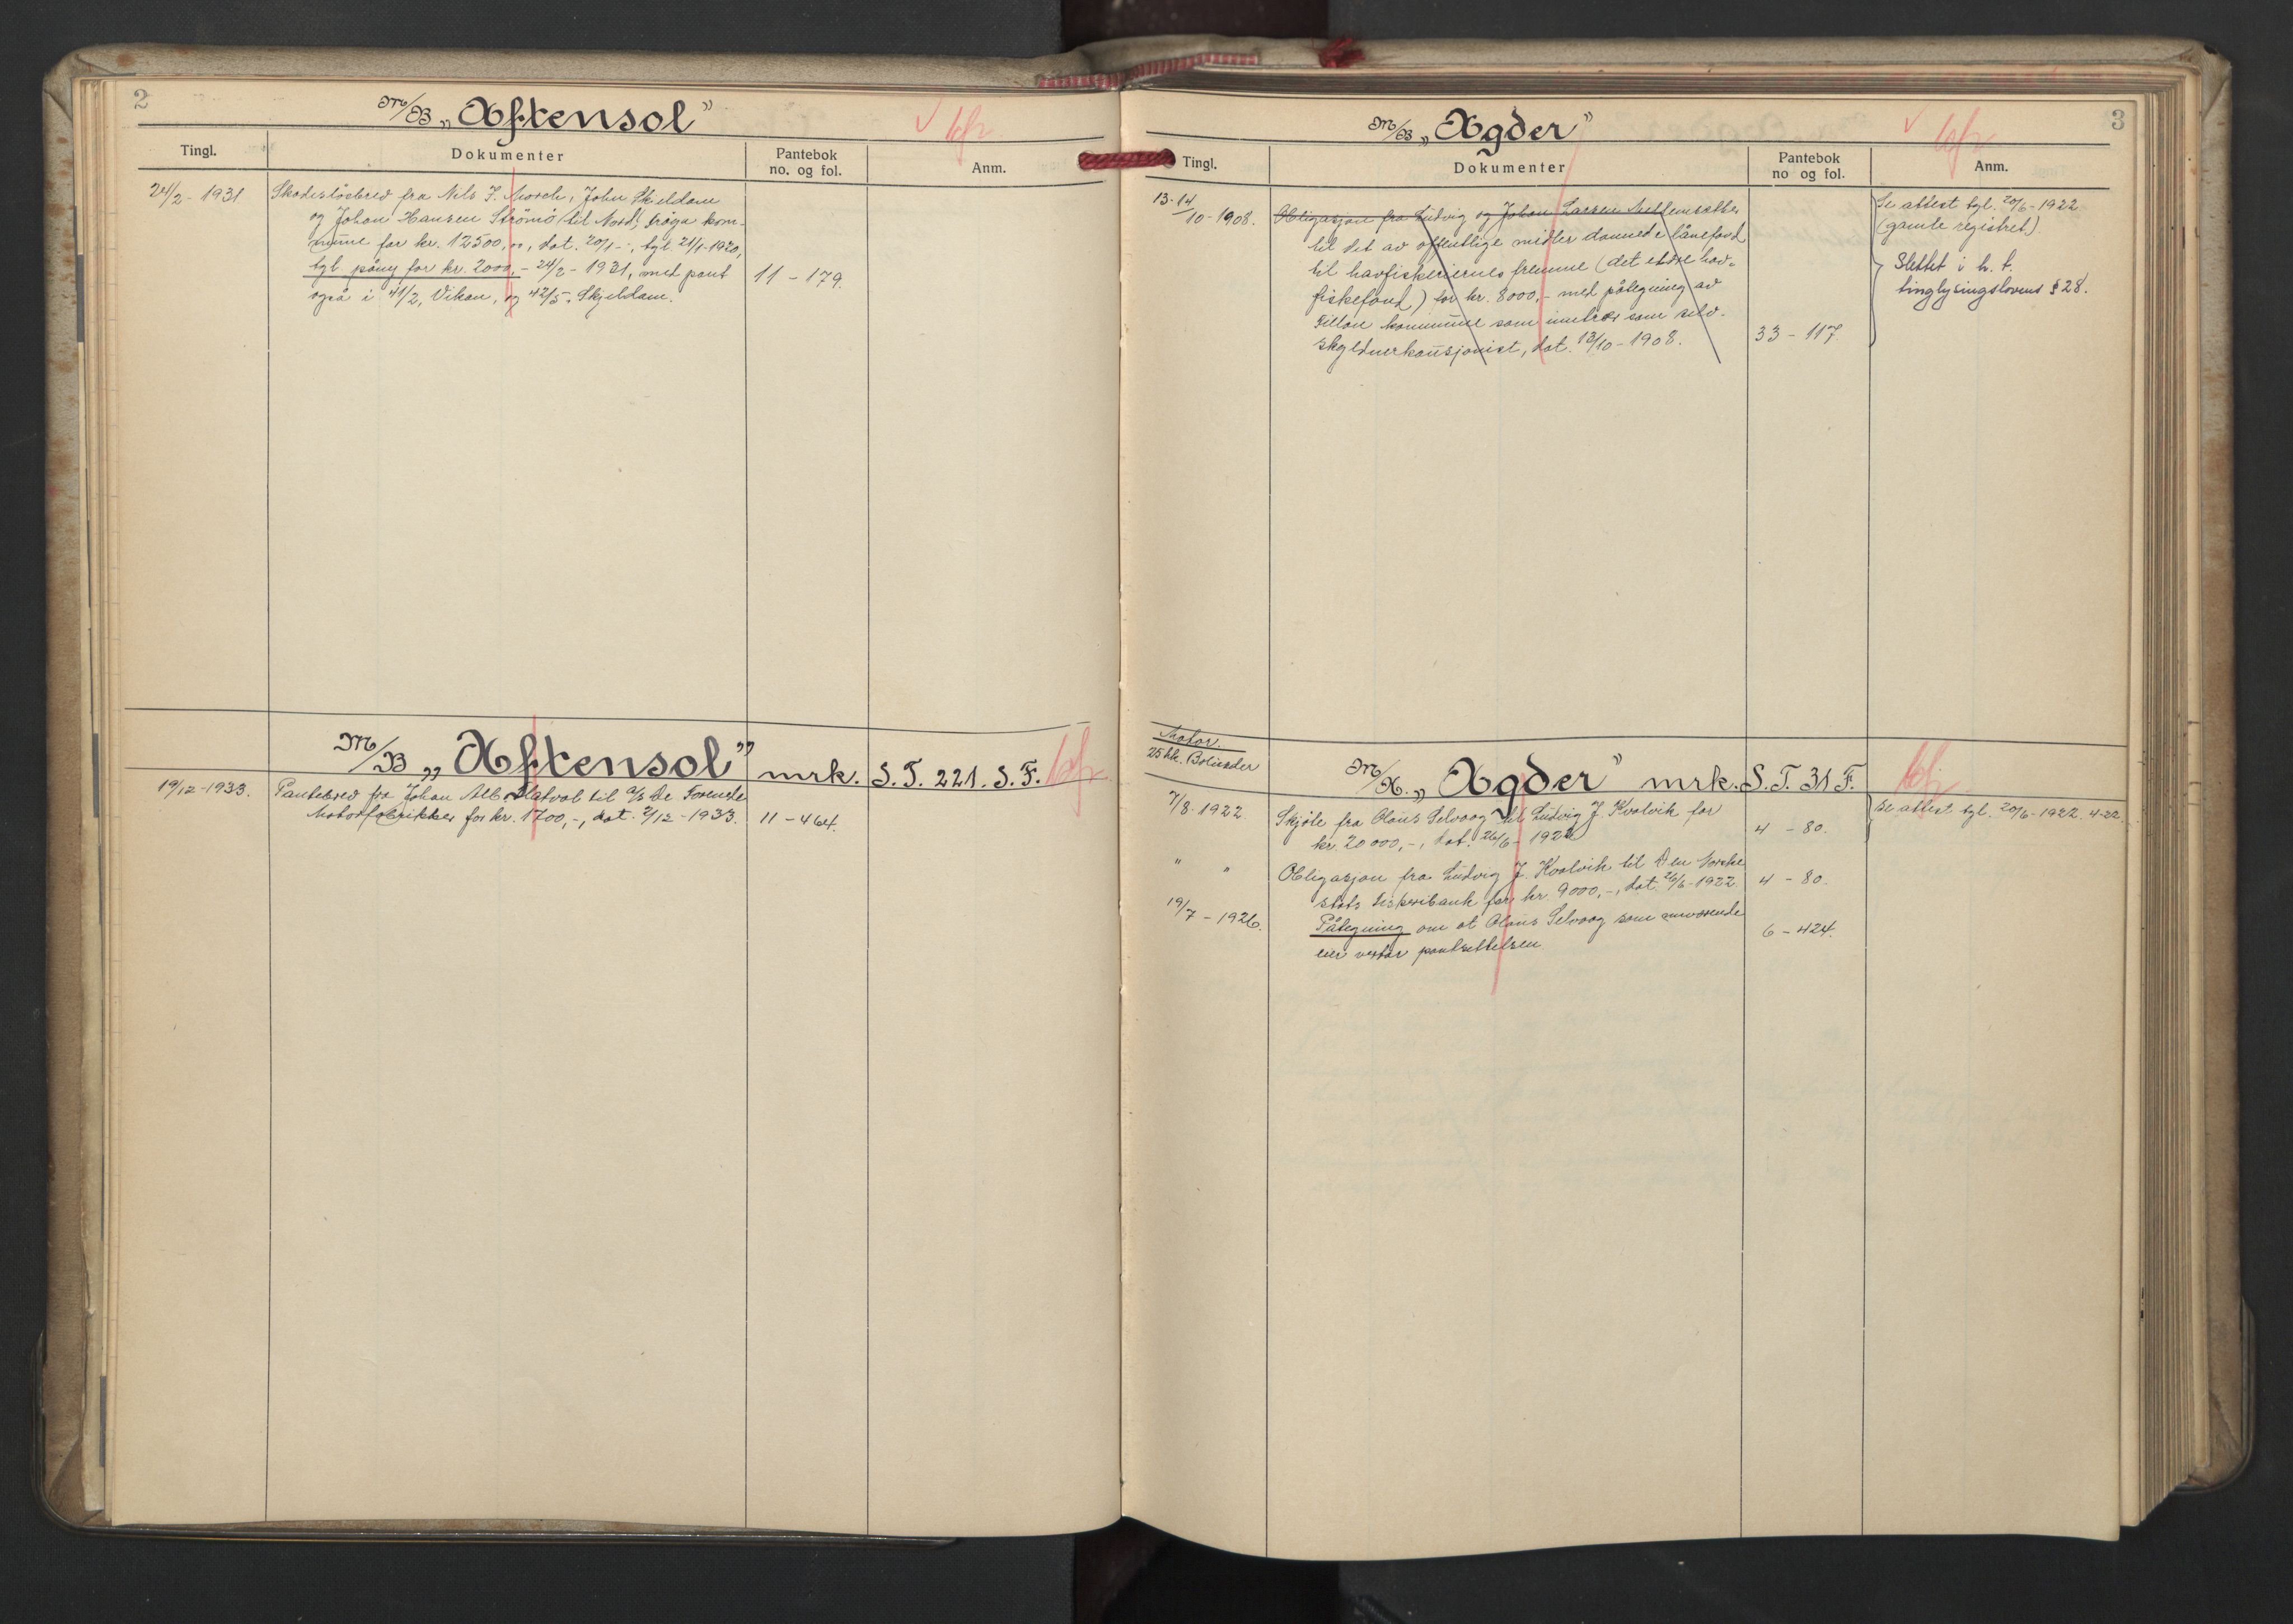 2
M/B „Aftensol"
Tingl.
Dokumenter
Pantebok
no. og fol.
Anm.
24/2 - 1931
Skadesløsbrev fra Nils J. Morch, John Skjeldam
og Johan Hansen Strömö til Nord-Fröya kom-
mune for kr. 12500,00, dat. 20/1 -, tgl. 21/1-1920,
tgl. påny for kr. 2000,- 24/2 - 1931, med pant
også i 41/2, Vikan, og 42/5, Skjeldam.
11 - 179.
M/B „Aftensol" mrk. S.T. 221. S.F.
19/12-1933.
Pantebrev fra Johan Alb. Slatval til A/S De Forenede
Motorfabrikker for kr. 1700,-, dat. 2/12 - 1933.
11 - 464.
3
M/B „Agder"
Tingl.
Dokumenter
Pantebok
no og fol.
Anm.
13-14/10-1908.
Obligasjon fra Ludvig og Johan Larsen
til det av offentlige midler dannede lånefond
til havfiskeriernes fremme (det eldre hav-
fiskefond) for kr. 8000,- med påtegning av
Fillan kommune som inntrær som selv-
skyldnerkausjonist, dat. 13/10 - 1908.
33 - 117.
Se attest tgl. 20/6-1922
(gamle registret)
Slettet i h. t.
tinglysingslovens § 28.
Motor.
25 hk. Bolinder
M/K. „Agder" mrk. S.T. 31 F.
7/8-1922
Skjöte fra Olaus Selvaag til Ludvig J. Kvalvik for
kr. 20 000,-, dat. 26/6 - 1922
4 - 80.
Se attest tgl. 20/6-1922. 4-22.
" "
Obligasjon fra Ludvig J. Kvalvik til Den Norske
stats Fiskeribank for kr. 9000,-, dat. 26/6-1922.
4 - 80.
19/7 - 1926.
Påtegning om at Olaus Selvaag som nuværende
eier vedtar pantsettelsen.
6 - 424.